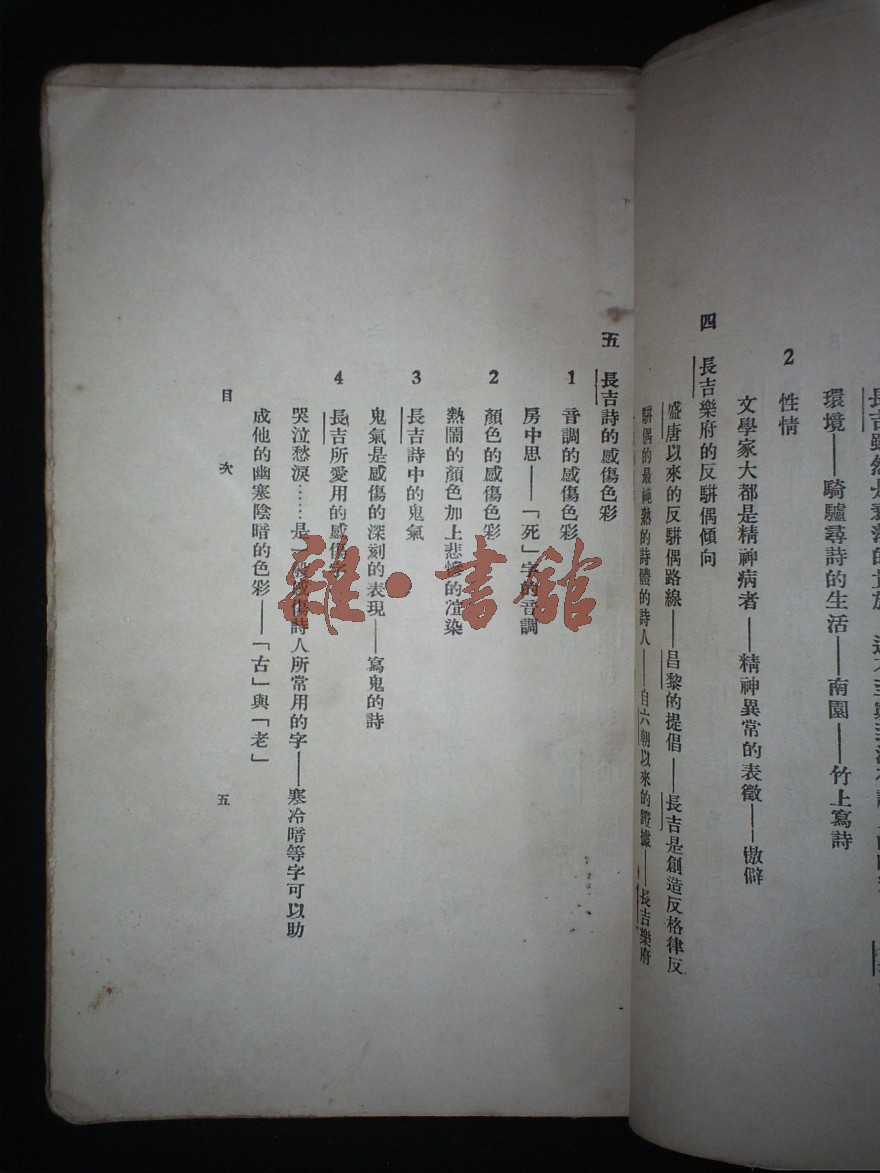 長吉雖然是
環境——騎驢尋詩的生活——南園——竹上寫詩
2 性情
文學家大都是精神病者——精神異常的表徵——傲僻
四 長吉樂府的反駢偶傾向
盛唐以來的反駢偶路線——昌黎的提倡——長吉是創造反格律反
駢偶的最純熟的詩體的詩人——自六朝以來的證據——長吉樂府
五 長吉詩的感傷色彩
1 音調的感傷色彩
房中思——「死」字的音調
2 顏色的感傷色彩
熱鬧的顏色加上悲慘的渲染
3 長吉詩中的鬼氣
鬼氣是感傷的深刻的表現——寫鬼的詩
4 長吉所愛用的感傷字
哭泣愁淚……是一般感傷詩人所常用的字——寒冷暗等字可以助
成他的幽寒陰暗的色彩——「古」與「老」
目次
五
雜·書館